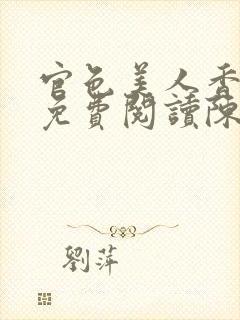 官色美人香
免費閱讀陳
劉萍